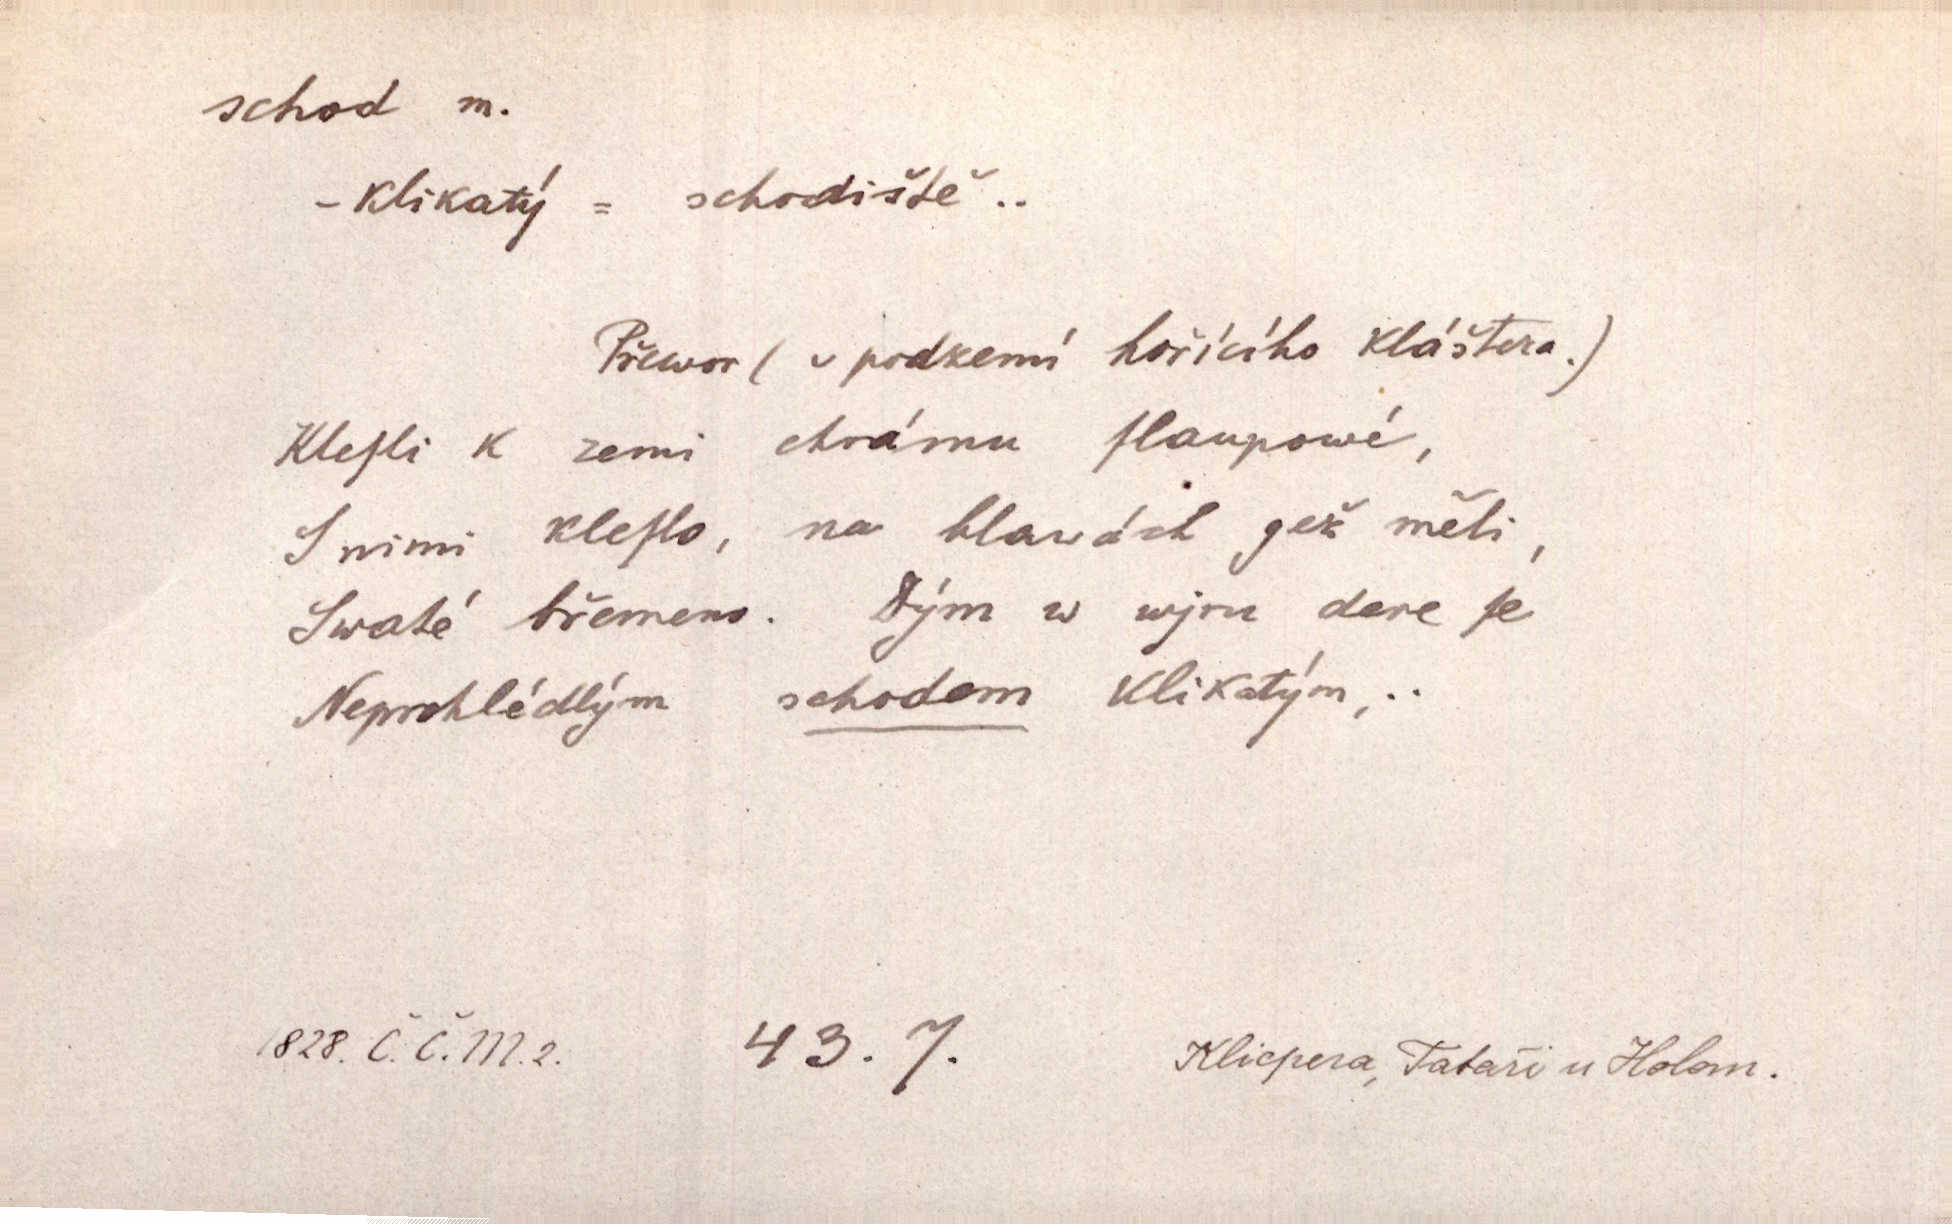 schod m.
- klikatý = schodiště ..
Přewor ( v podzemí hořícího kláštera. )
Kleſli k zemi chrámu ſlaupowé,
S nimi kleſlo, na hlawách gež měli,
Swaté břemeno. Dým w wjru dere ſe
Neprohlédlým schodem klikatým, ..
1828. Č. Č. M. 2. 43. 7. Klicpera, Tataři u Holom.